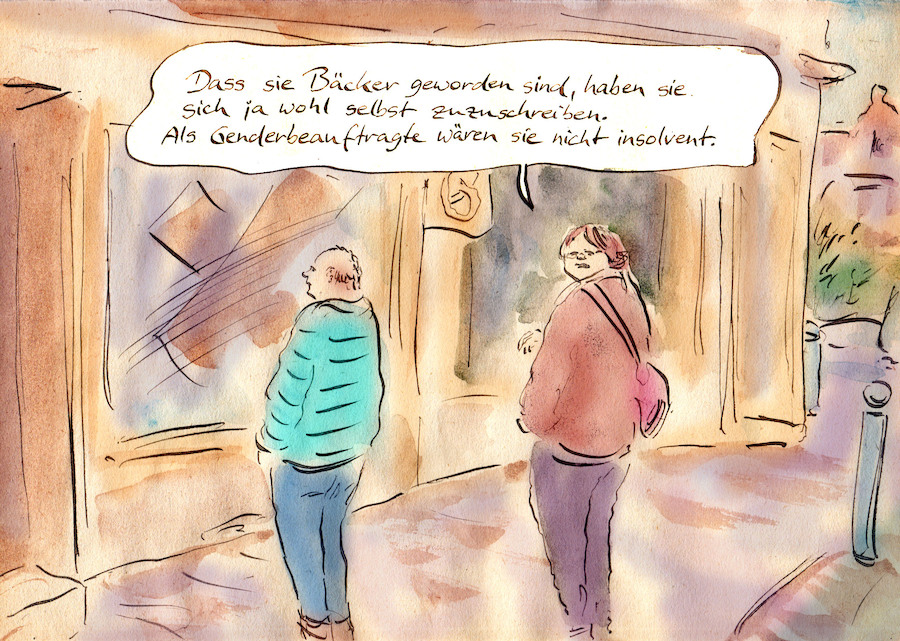 Dass sie Bäcker geworden sind, haben sie
sich ja wohl selbst zuzuschreiben.
Als Genderbeauftragte wären sie nicht insolvent.